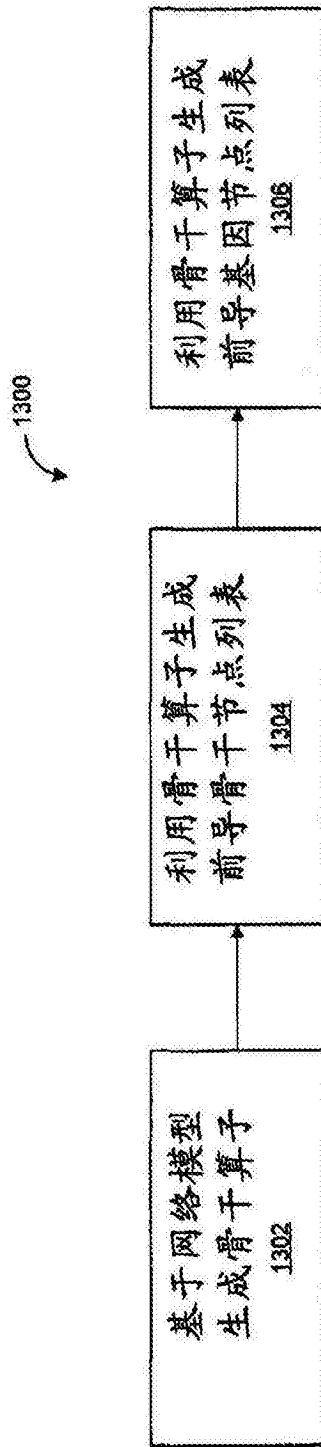 1300
基于网络模型
生成骨干算子
1302
利用骨干算子生成
前导骨干节点列表
1304
利用骨干算子生成
前导基因节点列表
1306